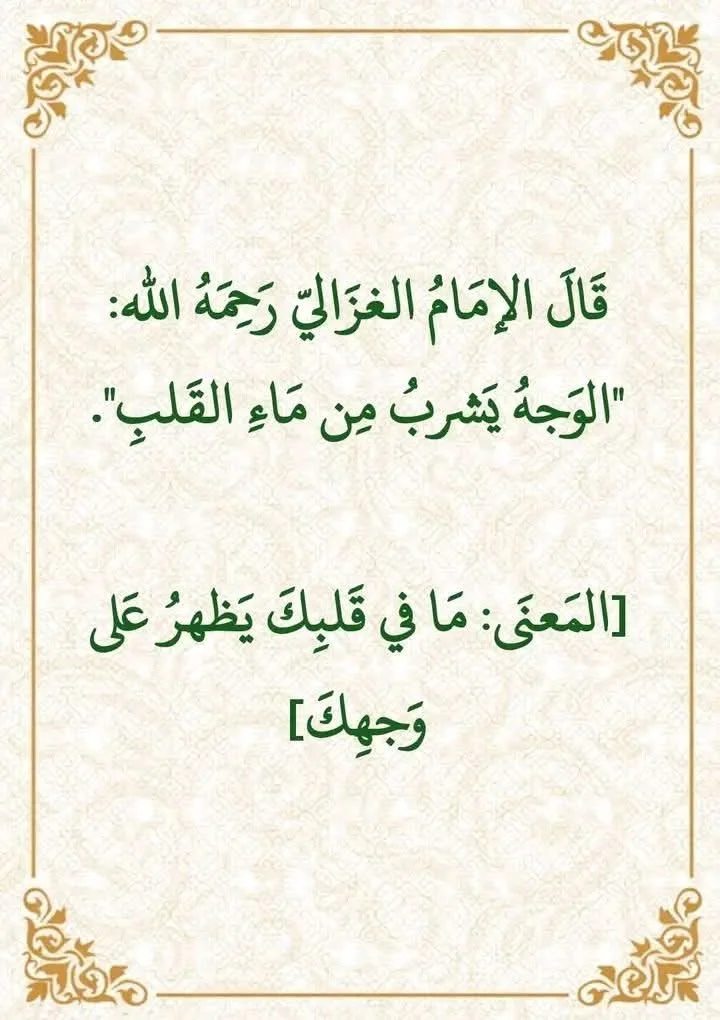 قَالَ الإمَامُ الغزَاليّ رَحِمَهُ الله:
"الوَجهُ يَشربُ مِن مَاءِ القَلبِ".
[المَعنَى: مَا في قَلبِكَ يَظهرُ عَلى
وَجهِكَ]